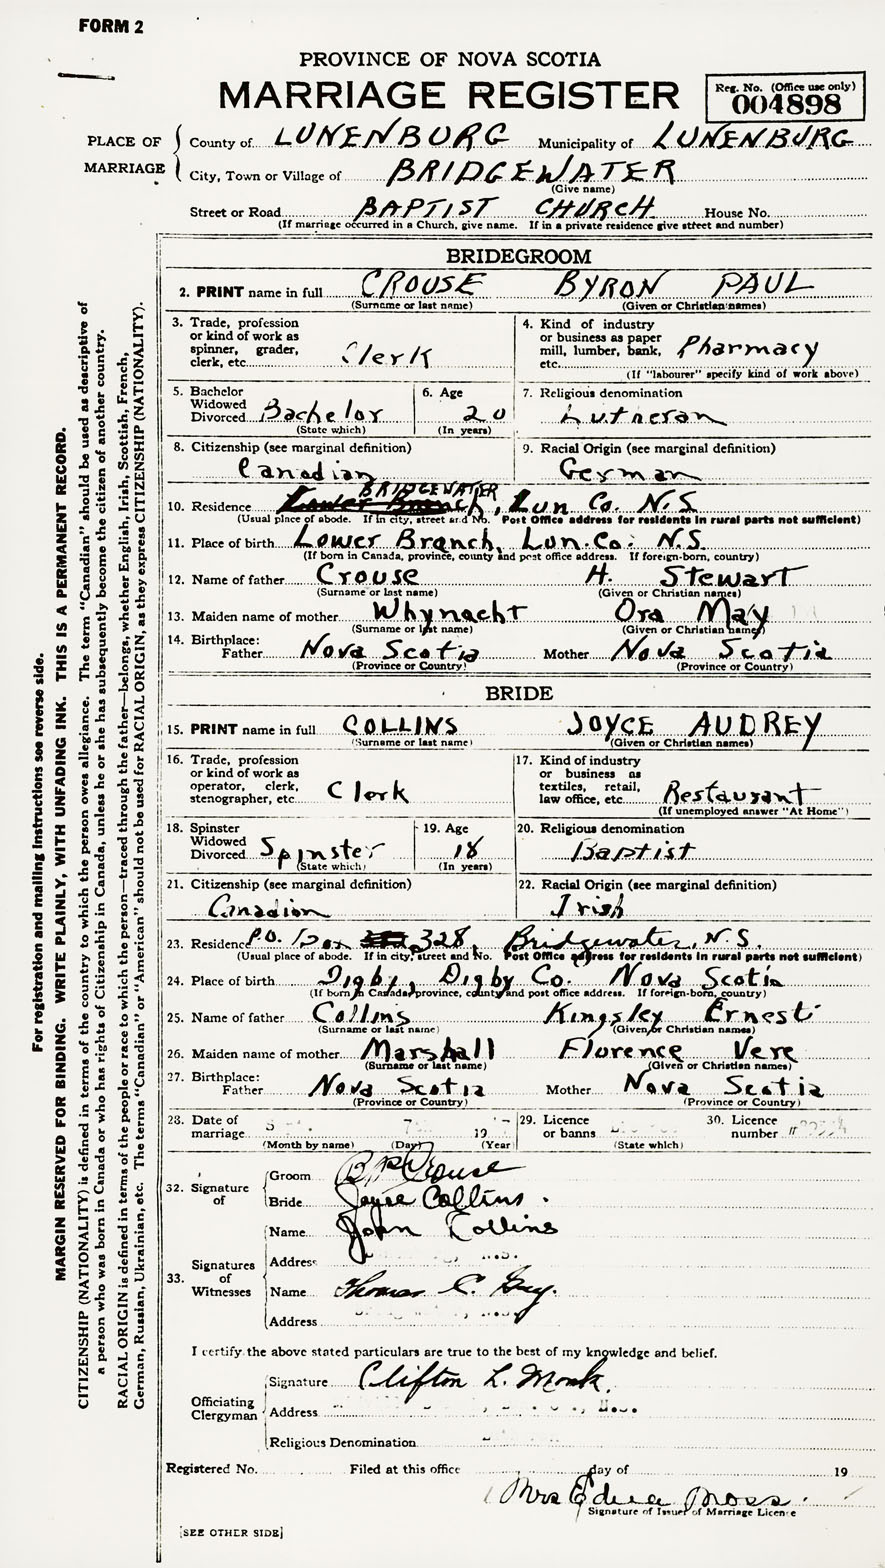 FORM 2
PROVINCE OF NOVA SCOTIA
MARRIAGE REGISTER
Reg. No. (Office use only)
004898
PLACE OF MARRIAGE
County of LUNENBURG Municipality of LUNENBURG
City, Town or Village of BRIDGEWATER
(Give name)
Street or Road BAPTIST CHURCH House No.
(If marriage occurred in a Church, give name. If in a private residence give street and number)
BRIDEGROOM
2. PRINT name in full CROUSE BYRON PAUL
(Surname or last name) (Given or Christian names)
3. Trade, profession or kind of work as spinner, grader, clerk, etc. Clerk
4. Kind of industry or business as paper mill, lumber, bank, etc. Pharmacy
(If "labourer" specify kind of work above)
5. Bachelor Widowed Divorced Bachelor
(State which)
6. Age 20
(In years)
7. Religious denomination
Lutheran
8. Citizenship (see marginal definition)
Canadian
9. Racial Origin (see marginal definition)
German
BRIDGEWATER
10. Residence Lower Branch, Lun Co. N.S
(Usual place of abode. If in city, street and No. Post Office address for residents in rural parts not sufficient)
11. Place of birth Lower Branch, Lun. Co. N.S.
(If born in Canada, province, county and post office address. If foreign-born, country)
12. Name of father Crouse H. Stewart
(Surname or last name) (Given or Christian names)
13. Maiden name of mother Whynacht Ora May
(Surname or last name) (Given or Christian names)
14. Birthplace:
Father Nova Scotia Mother Nova Scotia
(Province or Country) (Province or Country)
BRIDE
15. PRINT name in full COLLINS JOYCE AUDREY
(Surname or last name) (Given or Christian names)
16. Trade, profession or kind of work as operator, clerk, stenographer, etc. Clerk
17. Kind of industry or business as textiles, retail, law office, etc. Restaurant
(If unemployed answer "At Home")
18. Spinster Widowed Divorced Spinster
(State which)
19. Age 18
(In years)
20. Religious denomination
Baptist
21. Citizenship (see marginal definition)
Canadian
22. Racial Origin (see marginal definition)
Irish
23. Residence P.O. Box 328, Bridgewater, N.S.
(Usual place of abode. If in city, street and No. Post Office address for residents in rural parts not sufficient)
24. Place of birth Digby, Digby Co. Nova Scotia
(If born in Canada, province, county and post office address. If foreign-born, country)
25. Name of father Collins Kingsley Ernest
(Surname or last name) (Given or Christian names)
26. Maiden name of mother Marshall Florence Vere
(Surname or last name) (Given or Christian names)
27. Birthplace:
Father Nova Scotia Mother Nova Scotia
(Province or Country) (Province or Country)
28. Date of marriage 19
(Month by name) (Day) (Year)
29. Licence or banns
(State which)
30. Licence number #
32. Signature of
Groom B.P. Crouse
Bride Joyce Collins.
33. Signatures of Witnesses
Name John Collins
Address N.S.
Name Thomas C. Guy.
Address
I certify the above stated particulars are true to the best of my knowledge and belief.
Officiating Clergyman
Signature Clifton L. Monk.
Address N.S.
Religious Denomination
Registered No. Filed at this office day of 19
Mrs Edna Moss
Signature of Issuer of Marriage Licence
[SEE OTHER SIDE]
For registration and mailing instructions see reverse side.
MARGIN RESERVED FOR BINDING. WRITE PLAINLY, WITH UNFADING INK. THIS IS A PERMANENT RECORD.
CITIZENSHIP (NATIONALITY) is defined in terms of the country to which the person owes allegiance. The term "Canadian" should be used as descriptive of
a person who was born in Canada or who has rights of Citizenship in Canada, unless he or she has subsequently become the citizen of another country.
RACIAL ORIGIN is defined in terms of the people or race to which the person—traced through the father—belongs, whether English, Irish, Scottish, French,
German, Russian, Ukrainian, etc. The terms "Canadian" or "American" should not be used for RACIAL ORIGIN, as they express CITIZENSHIP (NATIONALITY).